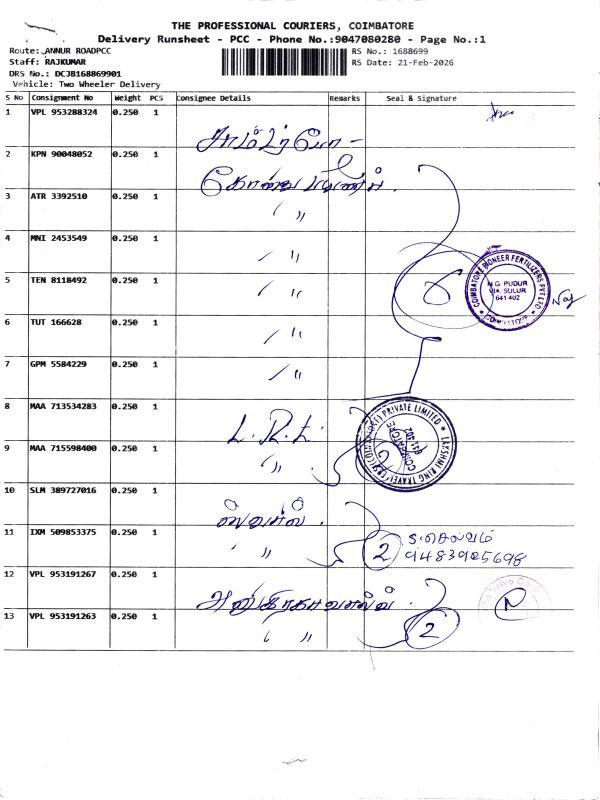 THE PROFESSIONAL COURIERS, COIMBATORE
Delivery Runsheet - PCC - Phone No.:9047080280 - Page No.:1
Route: ANNUR ROADPCC
RS No.: 1688699
Staff: RAJKUMAR
RS Date: 21-Feb-2026
DRS No.: DCJB168869901
Vehicle: Two Wheeler Delivery
S No Consignment No Weight PCS Consignee Details Remarks Seal & Signature
1 VPL 953288324 0.250 1
2 KPN 90048052 0.250 1
3 ATR 3392510 0.250 1 〃
4 MNI 2453549 0.250 1 〃
5 TEN 8118492 0.250 1 〃
6 TUT 166628 0.250 1 〃
7 GPM 5584229 0.250 1 〃
8 MAA 713534283 0.250 1 L.R.T.
9 MAA 715598400 0.250 1 〃
10 SLM 389727016 0.250 1
11 IXM 509853375 0.250 1 〃 2
12 VPL 953191267 0.250 1
13 VPL 953191263 0.250 1 〃 2
COIMBATORE PIONEER FERTILIZERS PVT LTD
M.G. PUDUR
VIA. SULUR
641 402
LAKSHMI RING TRAVELLERS (COIMBATORE) PRIVATE LIMITED
COIMBATORE
641 402
செல்வம்
9483925698